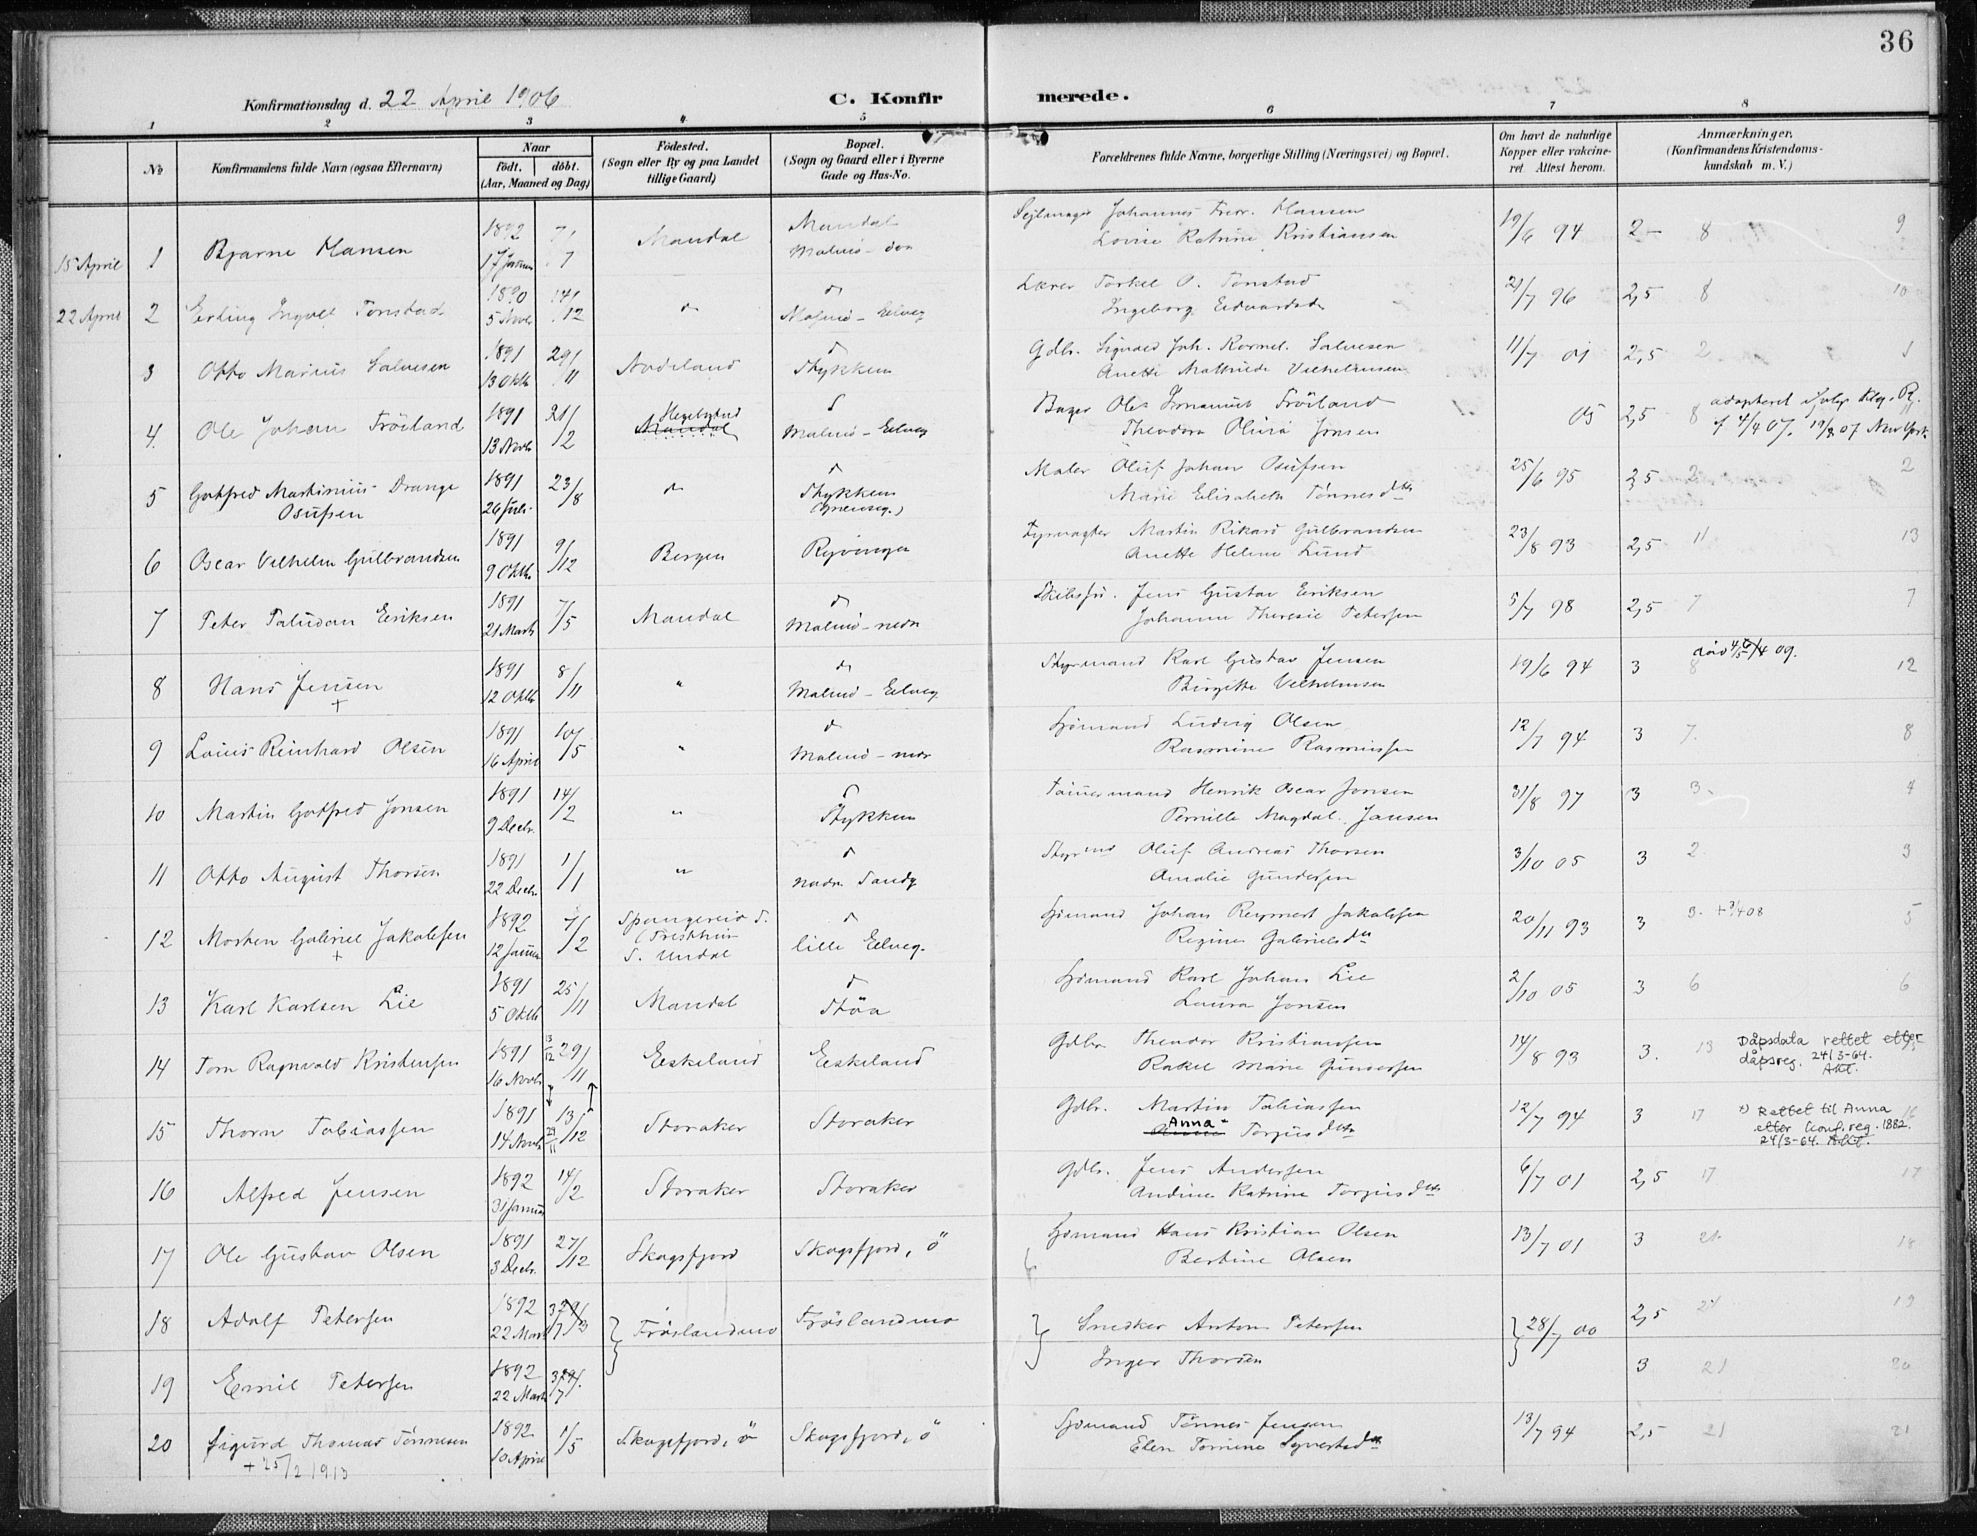 36
Konfirmationsdag d. 22 April 1906
C. Konfir merede.
1 2 3 4 5 6 7 8
No
Konfirmandens fulde Navn (ogsaa Efternavn)
Naar
født. døbt.
(Aar, Maaned og Dag)
Fødested.
(Sogn eller By og paa Landet
tillige Gaard)
Bopæl.
(Sogn og Gaard eller i Byerne
Gade og Hus-No.
Forældrenes fulde Navne, borgerlige Stilling (Næringsvei) og Bopæl.
Om havt de naturlige
Kopper eller vakcine-
ret Attest herom.
Anmærkninger.
(Konfirmandens Kristendoms-
kundskab m. V.)
15 April 1 Bjarne Hansen 1892 17 Januar Mandal Mandal
Johannes Fredr. Hansen
Lovise Katrine Kristiansen 19/6 94 2- 8 9
22 April 2 Erling Ingvell Tonstad 1890 5 Novb 14/12 Malmö - Eelveg
Lærer Torkel O. Tonstad
Ingeborg Edvardsd 21/7 96 2,5 8 10
3 Otto Marius Salvesen 1891 13 Oktb 29/11 Stykken
Gdbr. Sigvald Joh. Kornel. Salvesen
Anette Mathilde Vilhelmsen 11/7 01 2,5 2 1
4 Ole Johan Fröiland 1891 13 Novb 21/2 Mandal Malmö - Eelveg
Bager Ole Emanuel Fröiland
Theodora Olivia Jonsen 05 2,5 8 adopteret
New York
5 Gotfred Martinius Drange
Osufsen 1891 26 Juli 23/8 Stykken
Maler Oluf Johan Osufsen
Marie Elisabeth Tönnesdtr 25/6 95 2,5 2 2
6 Oscar Vilhelm Gulbrandsen 1891 9 Oktb 9/12 Bergen Ryvingen
Fyrvogter Martin Rikard Gulbrandsen
Anette Helene Lund 23/8 93 2,5 11 13
7 Peter Paludan Eriksen 1891 21 Marts 7/5 Mandal Malmö - nedr
Jens Gustav Eriksen
Johanne Theresie Petersen 5/7 98 2,5 7 7
8 Hans Jensen 1891 12 Oktb 8/11 " Malmö - Eelveg
+
Styrmand Karl Gustav Jensen
Birgitte Vilhelmsen 19/6 94 3 8 12
9 Louis Reinhard Olsen 1891 16 April 10/5 " Malmö - nedr
Sjömand Ludvig Olsen
Rasmine Rasmussen 12/7 94 3 7. 8
10 Martin Gotfred Jonsen 1891 9 Decbr. 14/2 " Stykken
Tömmermand Henrik Oscar Jonsen
Pernille Magdal. Jansen 31/8 97 3 3. 4
11 Otto August Thorsen 1891 22 Decbr. 1/1 " nedre Sandg
Styrmd Oluf Andreas Thorsen
Amalie Gundersen 3/10 05 3 2. 3
12 Morten Gabriel Jakobsen 1892 12 Januar 7/2 Spangereid S.
S. Undal lille Eelveg.
+
Sjömand Johan Reymert Jakobsen
Regine Gabrielsdtr 20/11 93 3 3. + 3/4 08 5
13 Karl Karlsen Lie 1891 5 Oktb 25/11 Mandal Stöa
Sjömand Karl Johan Lie
Laura Jonsen 2/10 05 3 6 6
14 Tom Ragnvald Kristensen 1891 16 Novb 13/12 29/11 Eeskeland Eeskeland
Gdbr Theodor Kristiansen
Rakel Marie Gundersen 14/8 93 3. 13 Dåpsdata rettet etter
dåpsreg. 24/3-64.
15 Thorn Tobiassen 1891 14 Novb 13/12 29/11 Storaker Storaker
Gdbr. Martin Tobiassen
Anna Torjusdtr 12/7 94 3 17 x) Rettet til Anna 16
etter konf.reg. 1882.
24/3-64.
16 Alfred Jensen 1892 31 Januar 14/2 Storaker Storaker
Gdbr. Jens Andersen
Andine Katrine Torjusdtr 6/7 01 2,5 17 17
17 Ole Gustav Olsen 1891 3 Decbr. 27/12 Skogsfjord Skogsfjord, ö
Sjömand Hans Kristian Olsen
Bertine Olsen 13/7 01 3 21. 18
18 Adolf Petersen 1892 22 Mar Fröslandmo Fröslandmo
Snedker Anton Petersen 28/7 00 2,5 21 19
19 Emil Petersen 1892 22 Mar
Inger Thorsen 3 21 20
20 Sigurd Thomas Tönnesen 1892 10 April 1/5 Skogsfjord, ö Skogsfjord, ö
+ 25/2 1913
Sjömand Tönnes Jensen
Elen Tomine Syvertsdtr 13/7 94 2,5 21 21